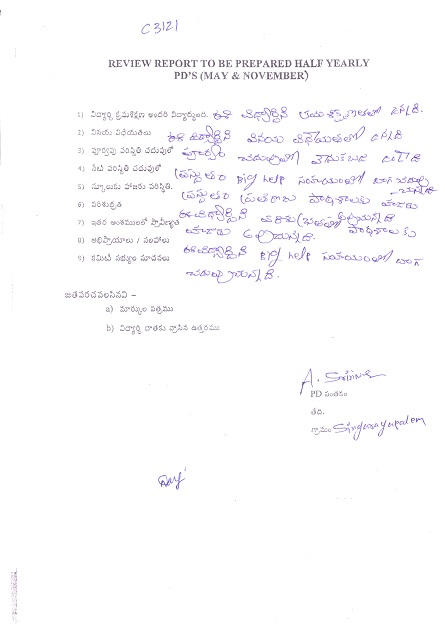 C3121
REVIEW REPORT TO BE PREPARED HALF YEARLY
PD'S (MAY & NOVEMBER)
1) విద్యార్ధి క్రమశిక్షణ అందరి విద్యార్ధులుంది. ఈ విద్యార్థిని క్రమశిక్షణతో ఉన్నది.
2) వినయ విధేయతలు ఈ విద్యార్థిని వినయ విధేయతలతో ఉన్నది
3) పూర్వపు పరిస్థితి చదువులో పూర్వం చదువులో వెనుకబడి ఉండేది
4) నేటి పరిస్థితి చదువులో ప్రస్తుతం Big help సహాయంతో బాగా చదువు చున్నది
5) స్కూలుకు హాజరు పరిస్థితి. ప్రస్తుతం ప్రతిరోజు పాఠశాలకు హాజరు
6) పరిశుభ్రత ఈ విద్యార్థిని పరిశుభ్రతతో ఉన్నది
7) ఇతర అంశములలో ప్రావీణ్యత పాఠశాలకు
8) అభిప్రాయాలు / సలహాలు హాజరు అగుచున్నది.
9) కమిటీ సభ్యుల సూచనలు ఈ విద్యార్థిని Big help సహాయంతో బాగా
చదువుచున్నది.
జతపరచవలసినవి –
a) మార్కుల పత్రము
b) విద్యార్ధి దాతకు వ్రాసిన ఉత్తరము
A. Srinivas
PD సంతకం
తేది.
గ్రామం Singarayapalem